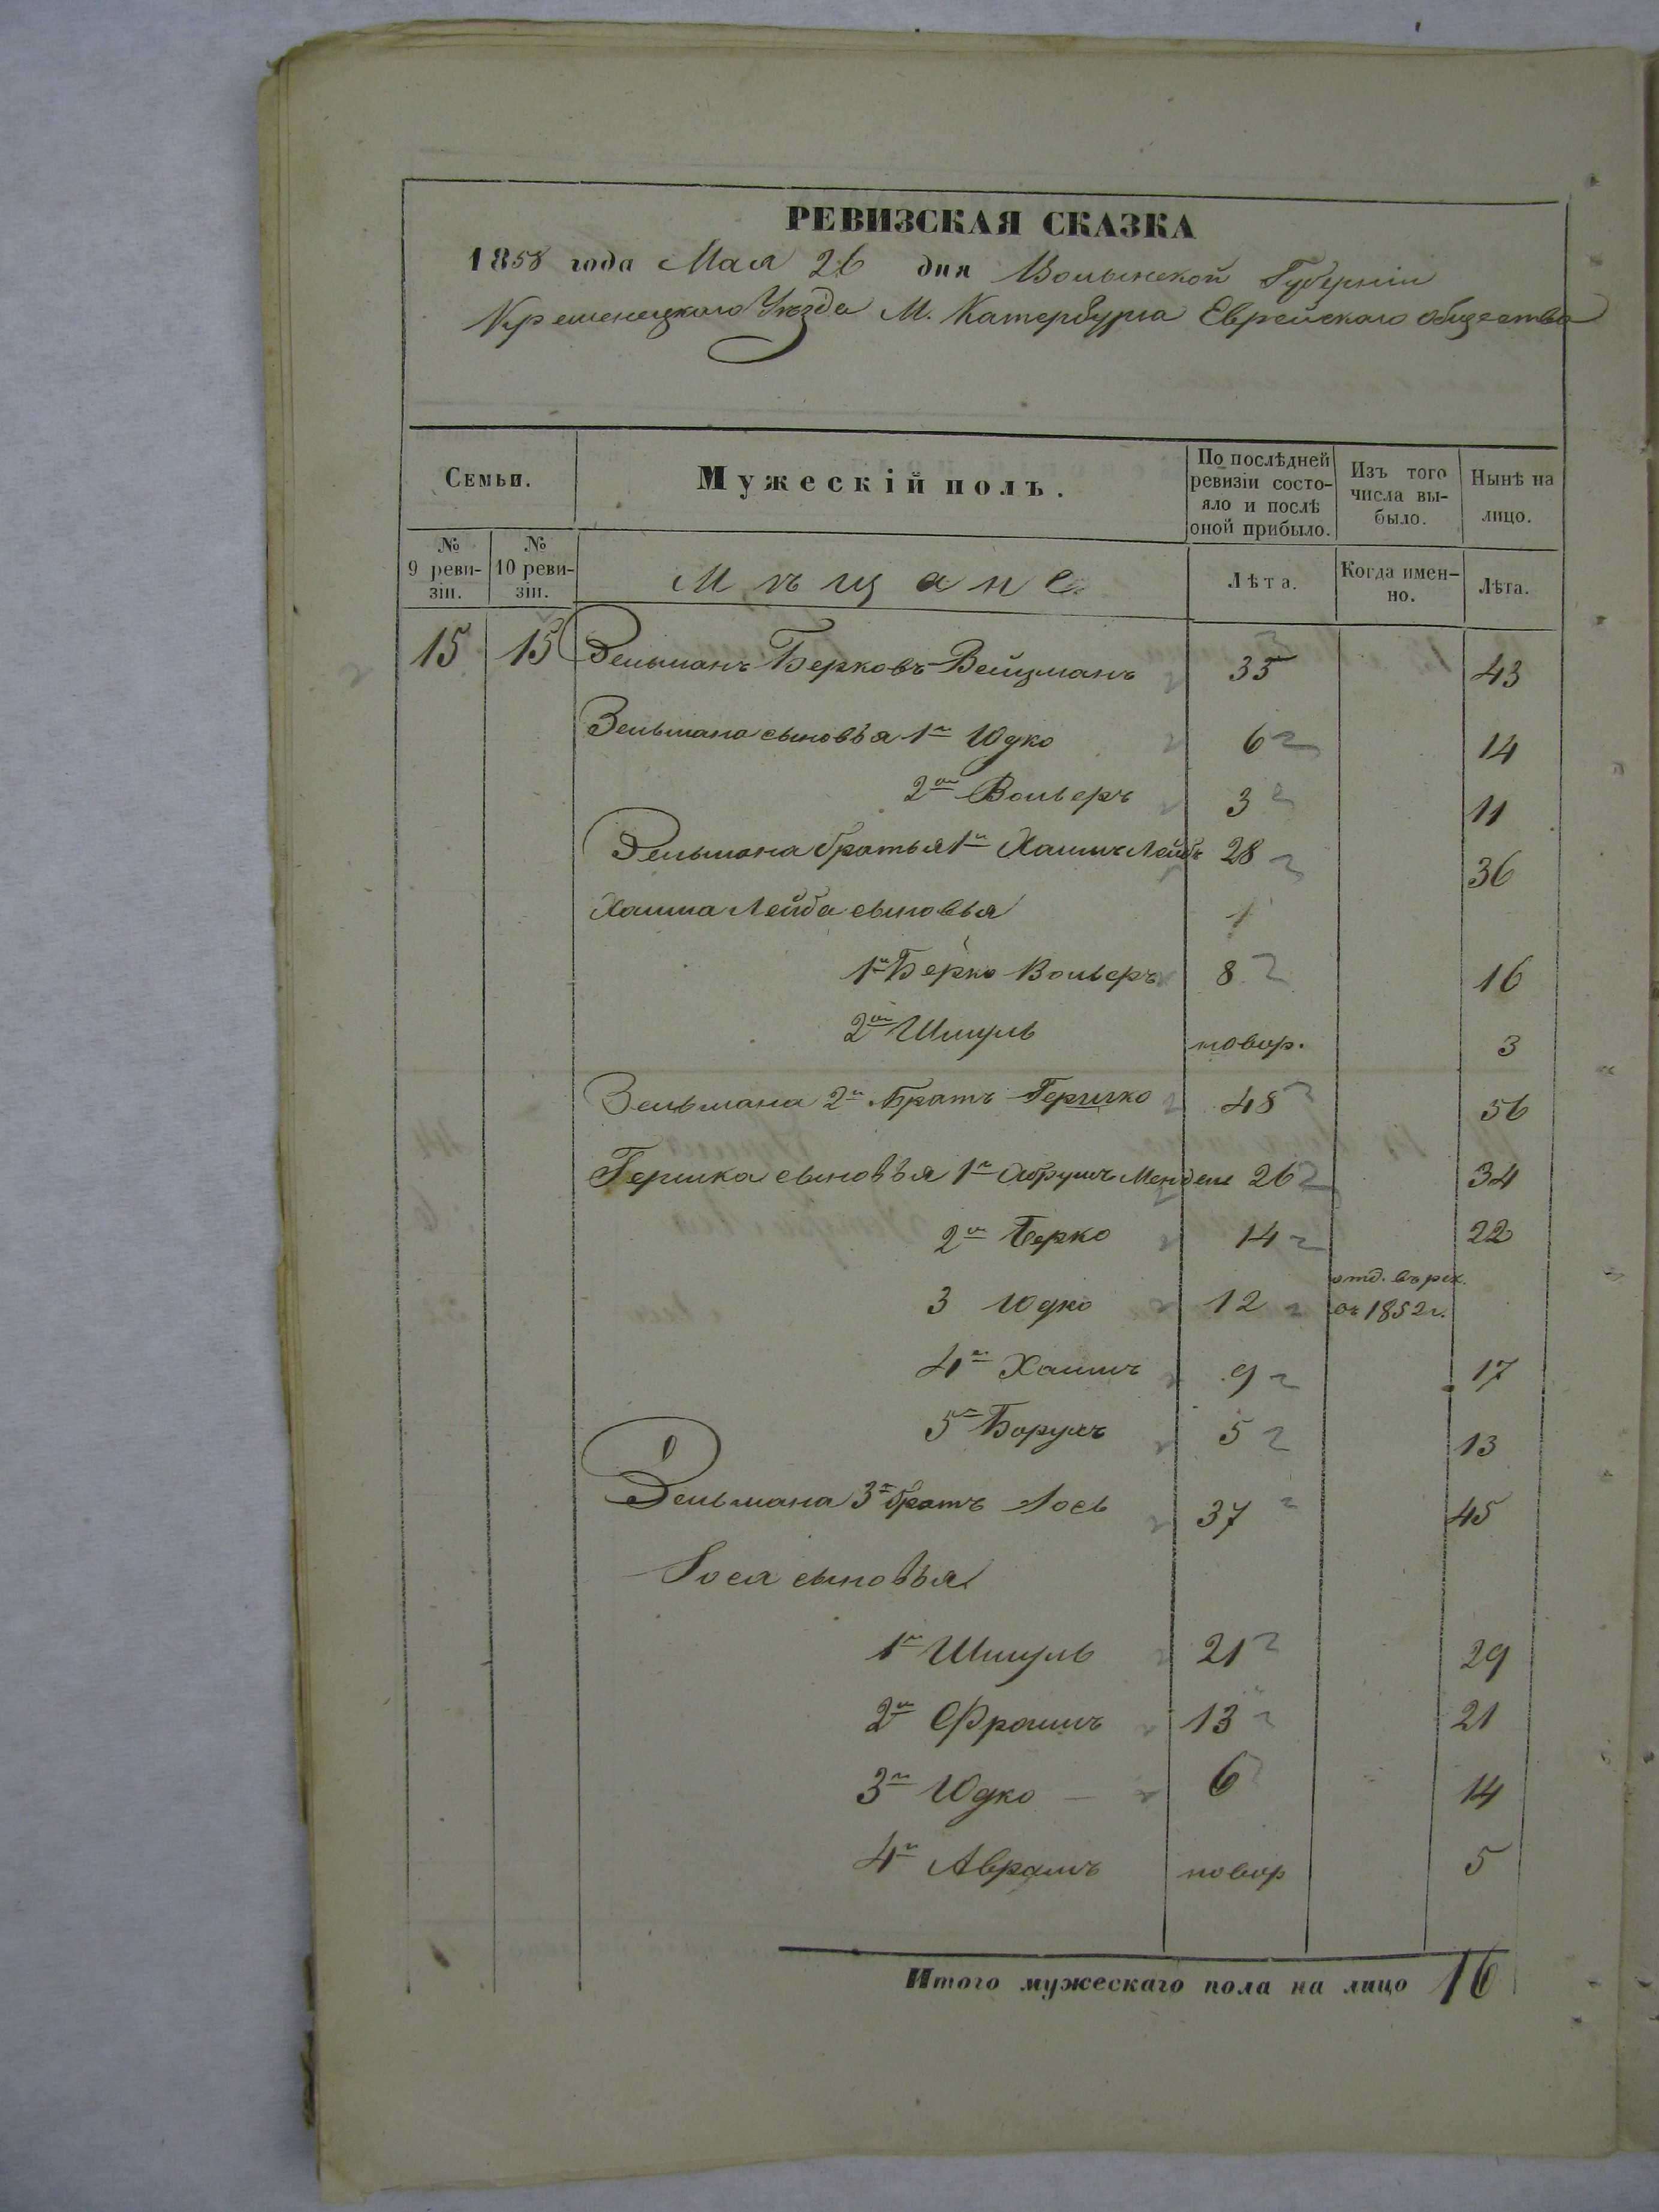 РЕВИЗСКАЯ СКАЗКА
1858 года Мая 26 дня Волынской Губерніи
Кременецкого Уѣзда М. Катербурга Еврейскаго общества
Семьи.
Мужескій полъ.
По послѣдней ревизіи состо-
яло и послѣ оной прибыло.
Изъ того числа вы-
было.
Нынѣ на лицо.
№ 9 реви-
зіи.
№ 10 реви-
зіи.
Мѣщане
Лѣта.
Когда имен-
но.
Лѣта.
15 15 Зельманъ Берковъ Вейцманъ 35 43
Зельмана сыновья 1й Юдко 6 14
2й Вольверъ 3 11
Зельмана братья 1й Хаимъ Лейбъ 28 36
Хаима Лейба сыновья
1й Берко Вольверъ 8 16
2й Шмуль новор. 3
Зельмана 2й Братъ Гершко 48 56
Гершка сыновья 1й Абрумъ Мендель 26 34
2й Берко 14 22
3 Юдко 12 отд. въ рек. въ 1852 г.
4й Хаимъ 9 17
5й Борухъ 5 13
Зельмана 3й братъ Іось 37 45
Іося сыновья
1й Шмуль 21 29
2й Фроимъ 13 21
3й Юдко 6 14
4й Аврамъ новор 5
Итого мужескаго пола на лицо 16